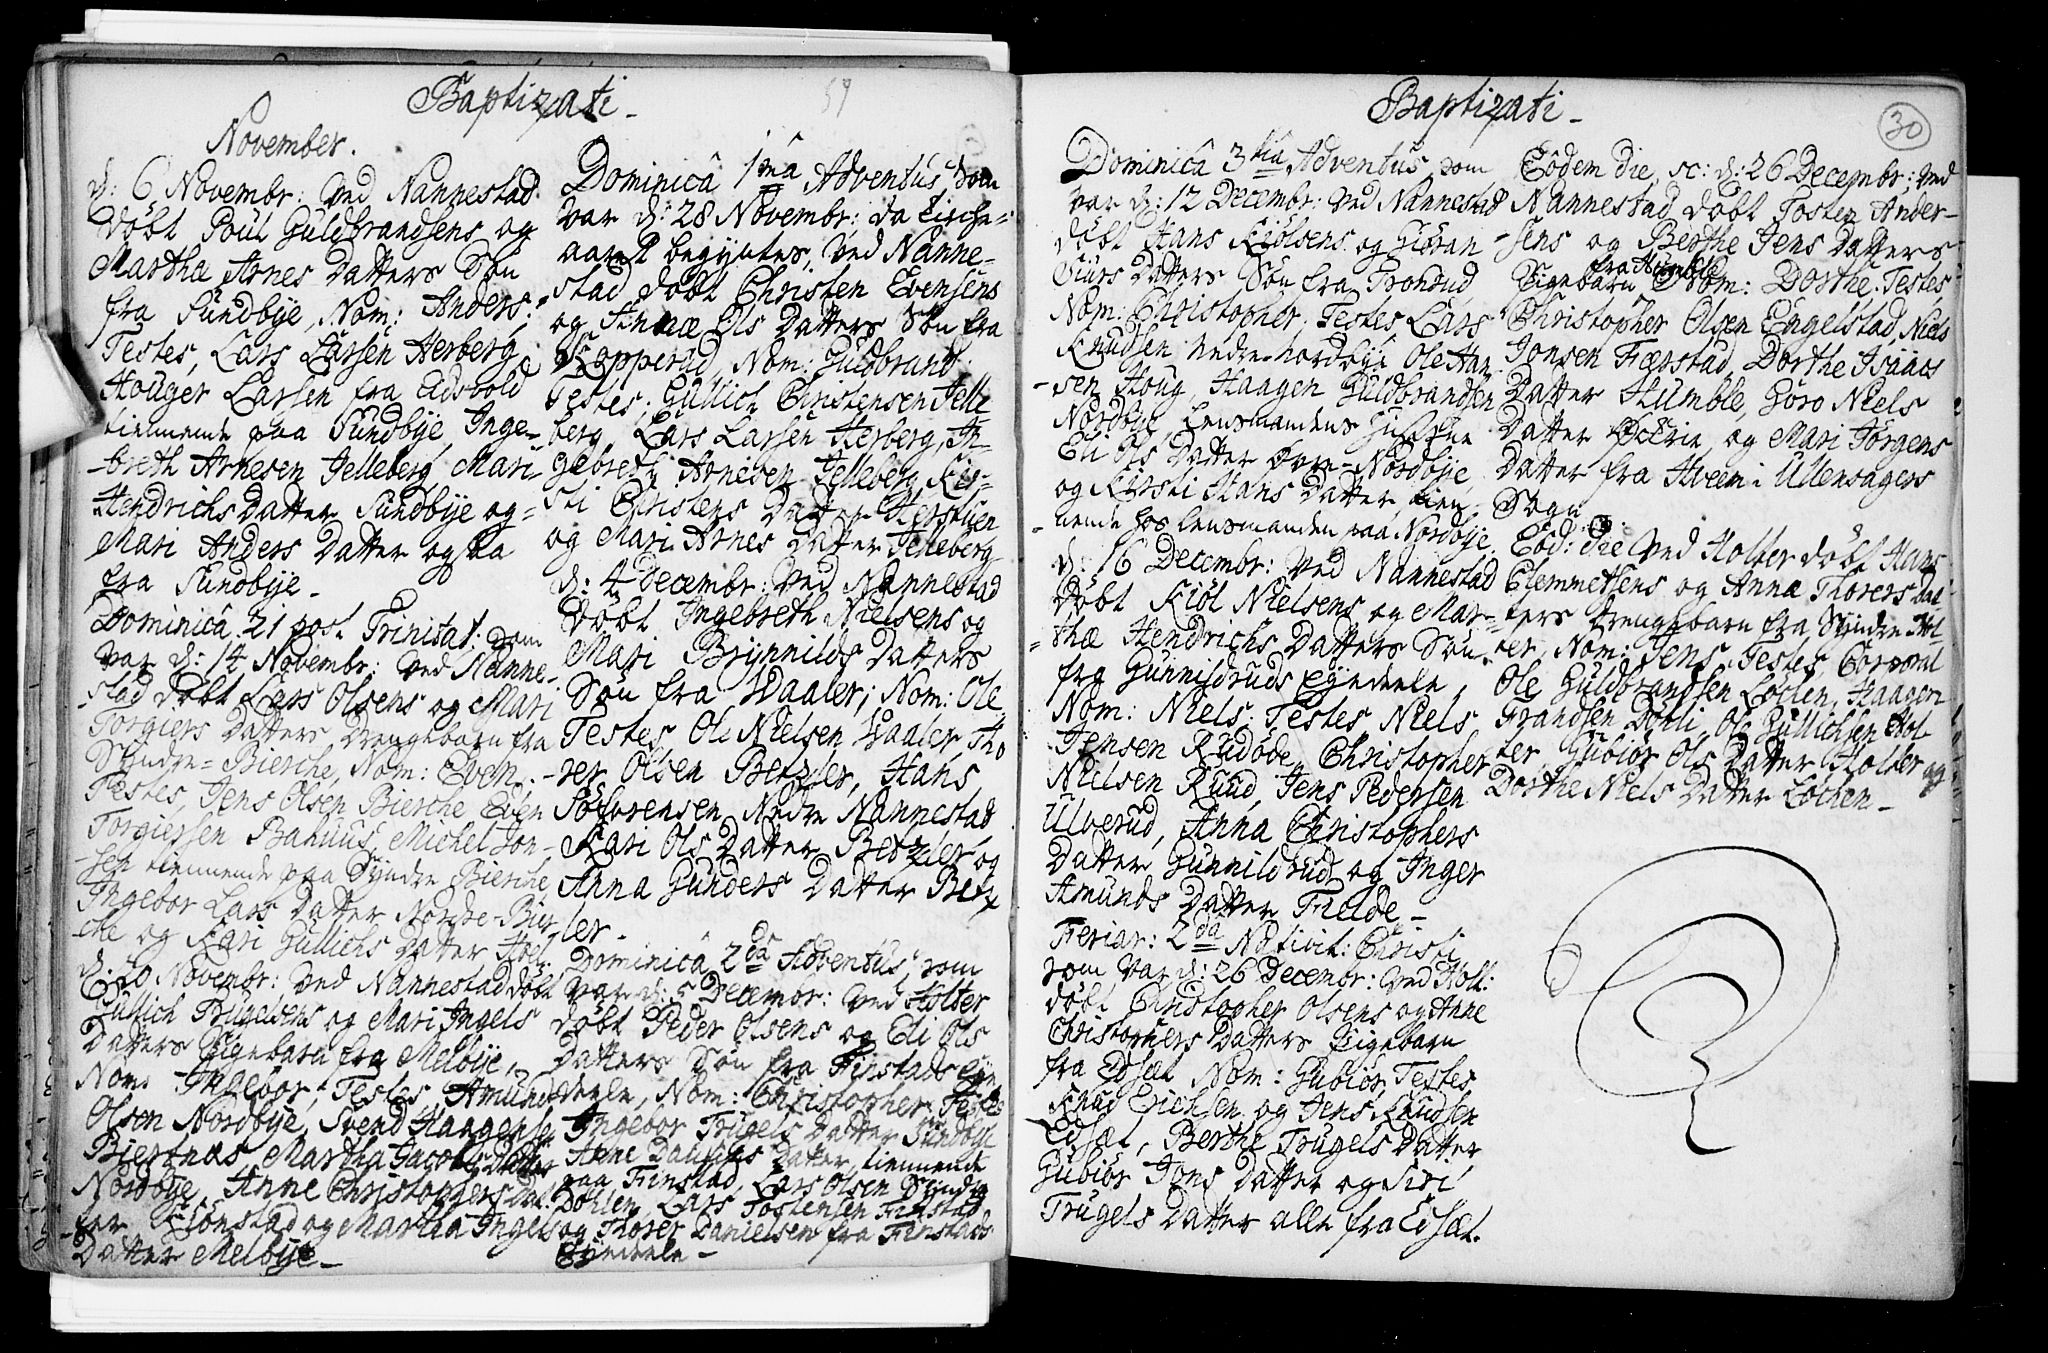 Baptizati
59
November.
d: 6 Novembr: ved Nannestad
döbt Poul Guldbrandsens og
Martha Arnes Datters Sön
fra Sundbÿe, Nom: Anders.
Testes, Lars Larsen Herberg,
Houger Larsen fra Eidsvold
tiennende paa Sundbÿe, Inge-
breth Arnesen Jelleberg, Mari
Hendrichs Datter Sundbÿe og
Mari Anders Datter ogsaa
fra Sundbÿe_
Dominicâ 21 post Trinitat: som
var d: 14 Novembr: ved Nanne-
stad döbt Lars Olsens og Mari
Torgiers Datters Drengebarn fra
Syndre-Bierche, Nom: Even.
Testes, Jens Olsen Bierche, Even
Torgiersen Bahuus, Michel Jon-
sen tiennende paa Syndre Bierche
Ingebor Lars Datter Nordre-Bier-
che og Kari Gullichs Datter Hoel.
d: 20 Novembr: ved Nannestad döbt
Gullich Trugelsens og Mari Ingels
Datters Pigebarn fra Melbÿe,
Nom: Ingebor; Testes, Amund
Olsen Nordbÿe, Svend Haagensen
Biertnæs Martha Jacobs Datter
Nordbÿe, Anne Christophers Dat-
ter Kiönstad og Martha Ingels
Datter Melbÿe_
Dominicâ 1ma Adventus, som
var d: 28 Novembr: da Kirche-
aaret begÿntes, ved Nanne-
stad döbt Christen Evensens
og Annæ Ols Datters Sön fra
Kopperud, Nom: Guldbrand.
Testes, Gullich Christensen Jelle
berg, Lars Larsen Herberg, In-
gebreth Arnesen Jelleberg, Kir-
sti Christens Datter
og Mari Arnes Datter Jelleberg
d: 4 Decembr: ved Nannestad
döbt Ingebreth Nielsens og
Mari Brÿnnilds Datters
Sön fra Waaler; Nom: Ole
Testes Ole Nielsen Waaler, Tho
rer Olsen Betzler, Hans
Nedre Nannestad
Kari Ols Datter Betzler, og
Anna Gunders Datter Betz
ler_
Dominicâ 2da Adventus, som
var d: 5 Decembr: ved Holter
döbt Peder Olsens og Eli Ols
Datters Sön fra Finstads Eÿe
deele, Nom: Christopher. Testes
Ingebor Trugels Datter Sundbÿe
Anne Datter tiennende
paa Finstad, Lars Olsen
Döhlen, Lars Tostensen Finstad
og Thorer Danielsen fra Finstads
Eÿedeele_
Baptizati
30
Dominicâ 3tia Adventus, som
var d: 12 Decembr: ved Nannestad
döbt Hans Kiölsens og Giöran
Siurs Datters Sön fra Tronrud
Nom: Christopher, Testes, Lars
Knudsen nedre-nordbÿe, Ole Han-
sen Houg, Haagen Guldbrandsen
Nordbÿe Lensmandens Hustrue
Eli Ols Datter Övre-Nordbÿe
og Kirsti Hans Datter tien-
nende hos Lensmanden paa Nordbÿe.
d: 16 Decembr: ved Nannestad
döbt Kiöl Nielsens og Mar-
thæ Hendrichs Datters Sön
fra Gunnildruds Eÿedeele,
Nom: Niels. Testes Niels
Jensen Rudöde, Christopher
Nielsen Ruud, Jens Pedersen
Ulverud, Anna Christophers
Datter Gunnildrud og Inger
Amunds Datter Fielde_
Feriar: 2da Nativit: Christi,
som var d: 26 Decembr: ved Holt:
döbt Christopher Olsens og Anne
Christophers Datters Pigebarn
fra Edsæt Nom: Gubiör, Testes
Knud Erichsen og Jens Knudsen
Edsæt, Berthe Trugels Datter
Gubiör Jens Datter og Siri
Trugels Datter alle fra Edsæt.
Eôdem die, sc: d: 26 Decembr: ved
Nannestad döbt Tosten Ander-
sens og Berthe Jens Datters
fra Humble
Pigebarn Nom: Dorthe. Testes,
Christopher Olsen Engelstad, Niels
Jonsen Færstad, Dorthe Isaacs
Datter Humble, Goro Niels
Datter og Mari Jörgens
Datter fra Hveem i Ullensagers
Sogn.
Eôd: die ved Holter döbt Hans
Clemmetsens og Anna Thorers Dat-
ters Drengebarn fra Syndre Hol-
ter, Nom: Jens, Testes, Corporal
Ole Guldbrandsen Löchen, Haagen
Frandsen Döbli, Ole Gullichsen Hol-
ter, Gubiör Ols Datter Holter og
Dorthe Niels Datter Löchen_